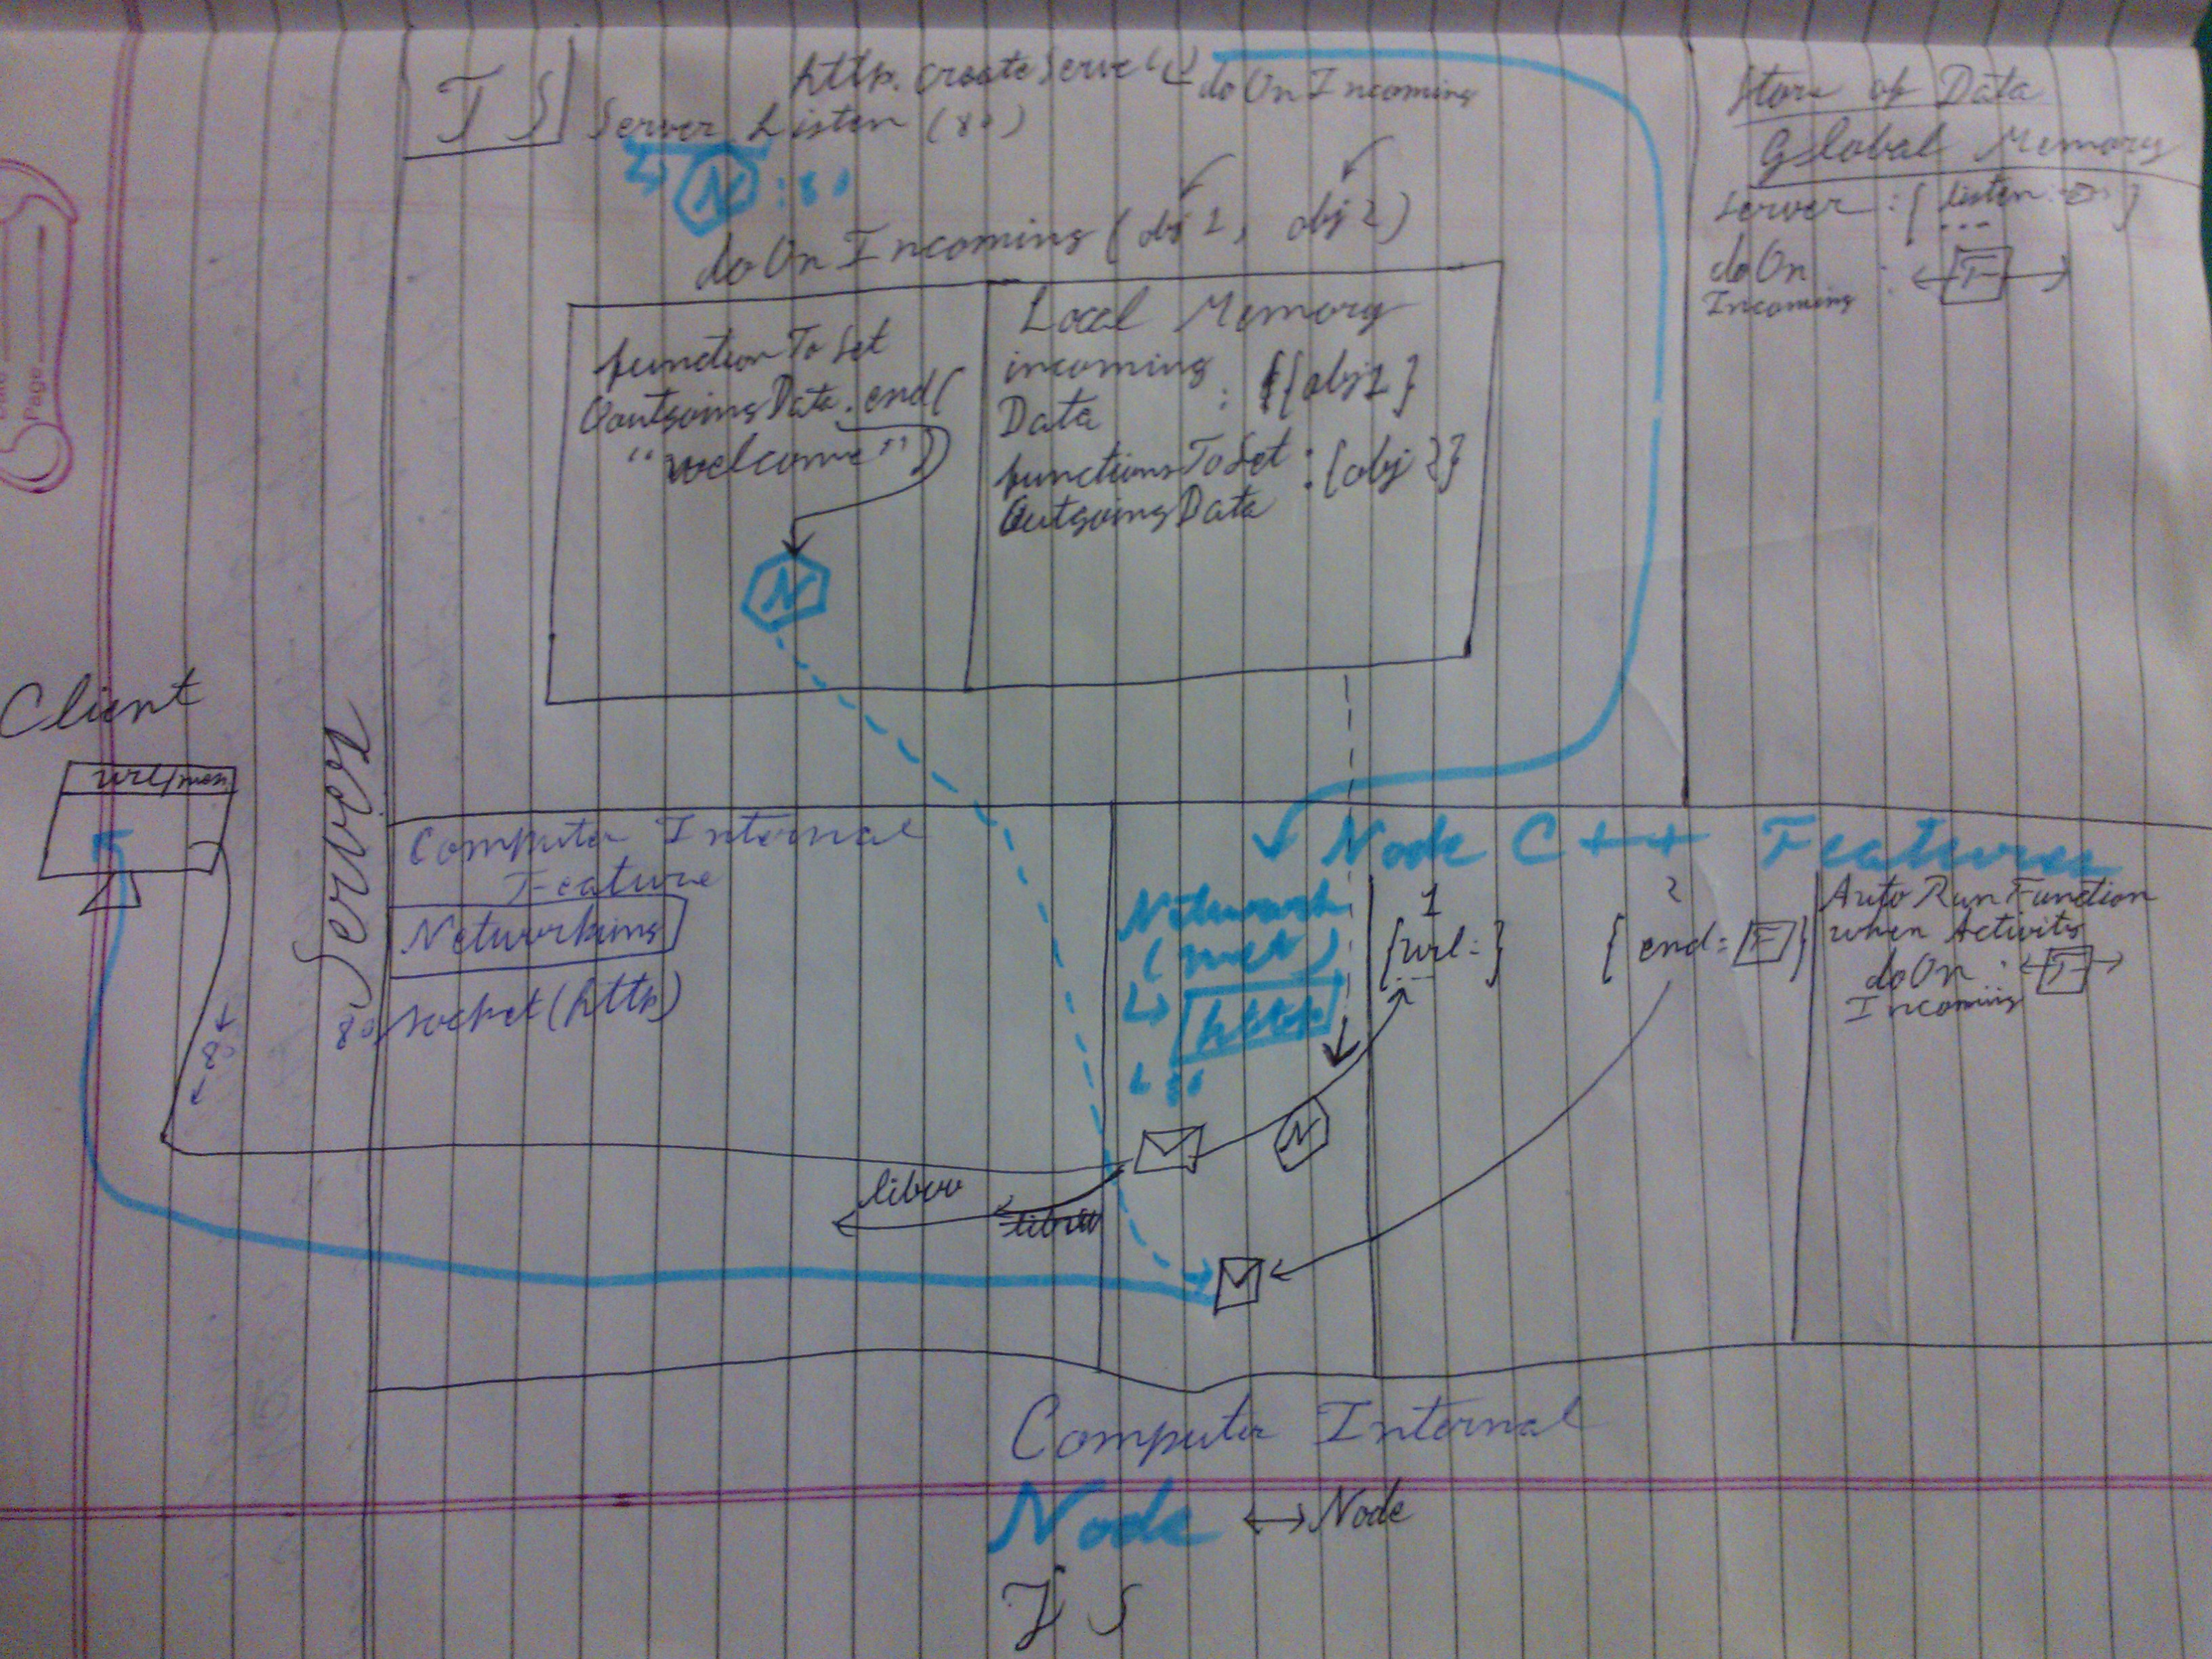 JS
http.createServer()
doOnIncoming
Server Listen (80)
N :80
doOnIncoming (obj 1, obj 2)
functionToSet
OoutgoingData.end(
"welcome")
N
Local Memory
incoming
Data : {{obj1}
functionsToSet : {obj 2}
OutgoingData
Store of Data
Global Memory
Server : { listen: F }
...
doOn
Incoming : F
Client
url/
80
Server
Computer Internal
Feature
Networking
80 socket (http)
Node C++ Features
Network
(net)
http
80
1
{url: }
...
2
{ end: F }
Auto Run Function
when Activity
doOn : F
Incoming
N
libuv
libuv
Computer Internal
Node ↔ Node
JS